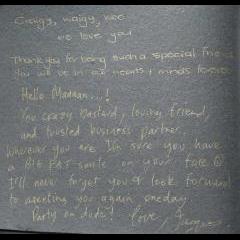 Craigy, waigy, woo
we love you
Thank you for being such a special friend
You will be in our hearts & minds forever
Hello Maaaan...!
You crazy bastard, loving friend,
and trusted business partner.
Wherever you are I'm sure you have
a BIG FAT smile on your face
I'll never forget you & look forward
to meeting you again oneday
Party on dude? Love,